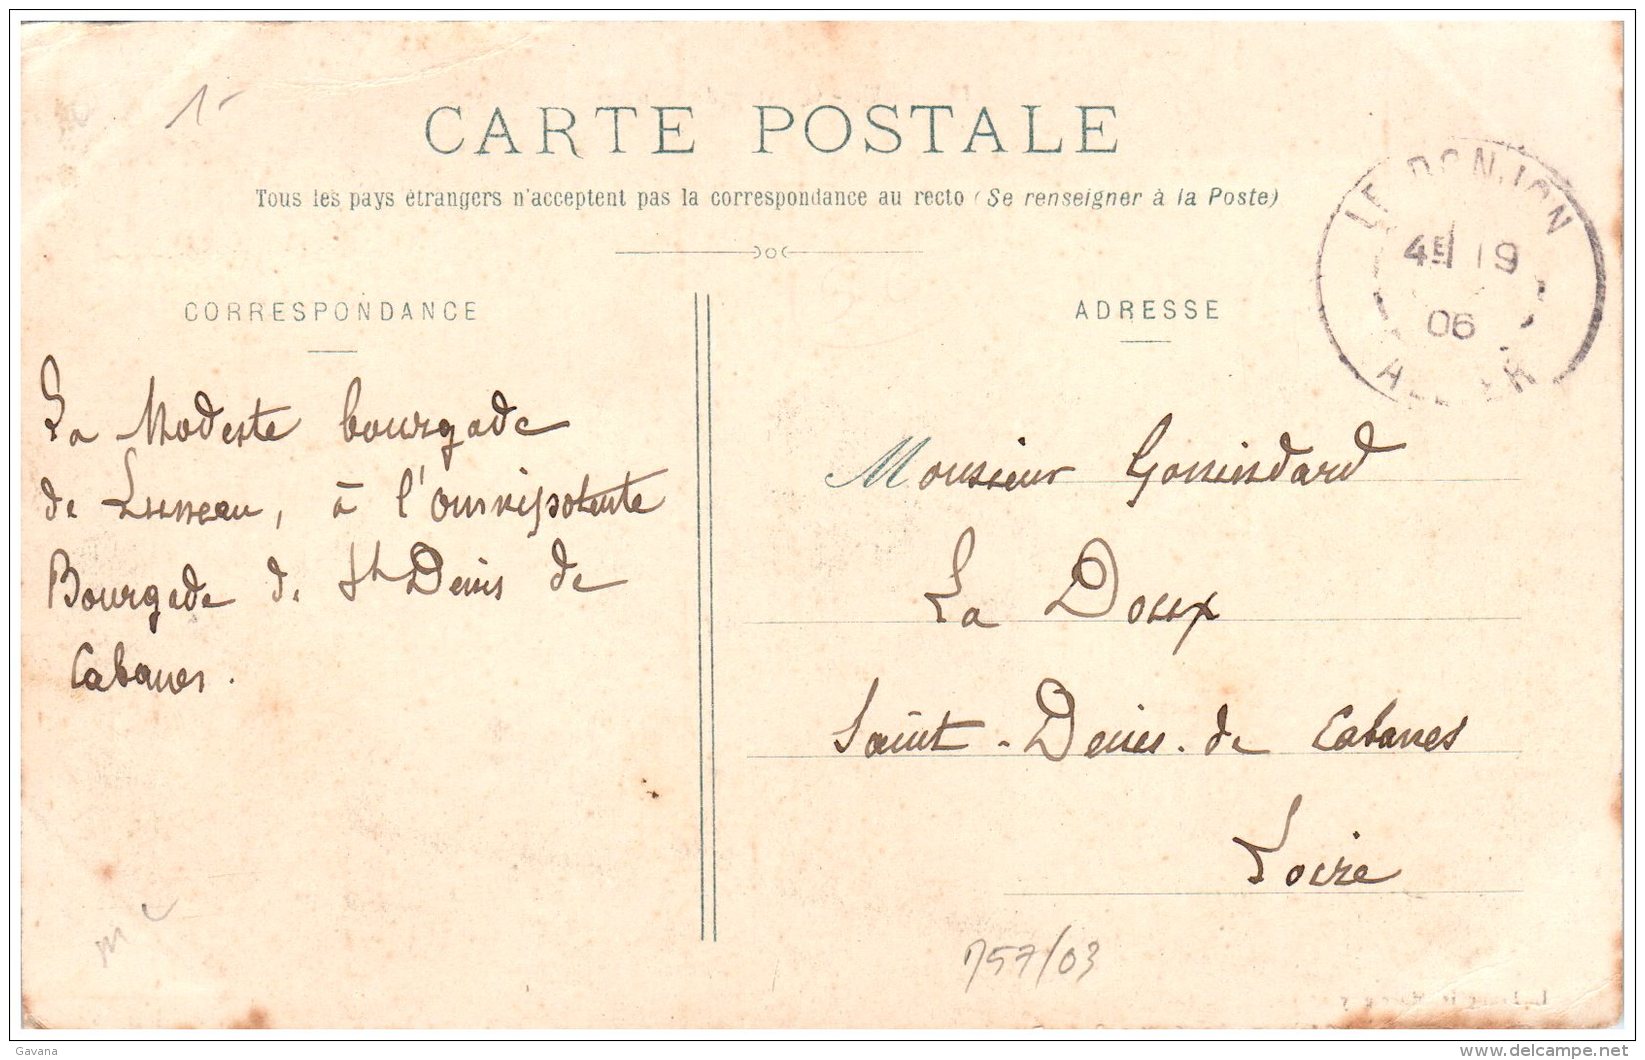 1-
CARTE POSTALE
Tous les pays étrangers n'acceptent pas la correspondance au recto (Se renseigner à la Poste)
LE DONJON
4E 19
06
ALLIER
CORRESPONDANCE
La Modeste bourgade
de Luneau, à l'omnipotente
Bourgade de St Denis de
Cabanes.
ADRESSE
Monsieur Gonindard
La Doux
Saint-Denis-de Cabanes
Loire
757/03
Gavana
delcampe.net